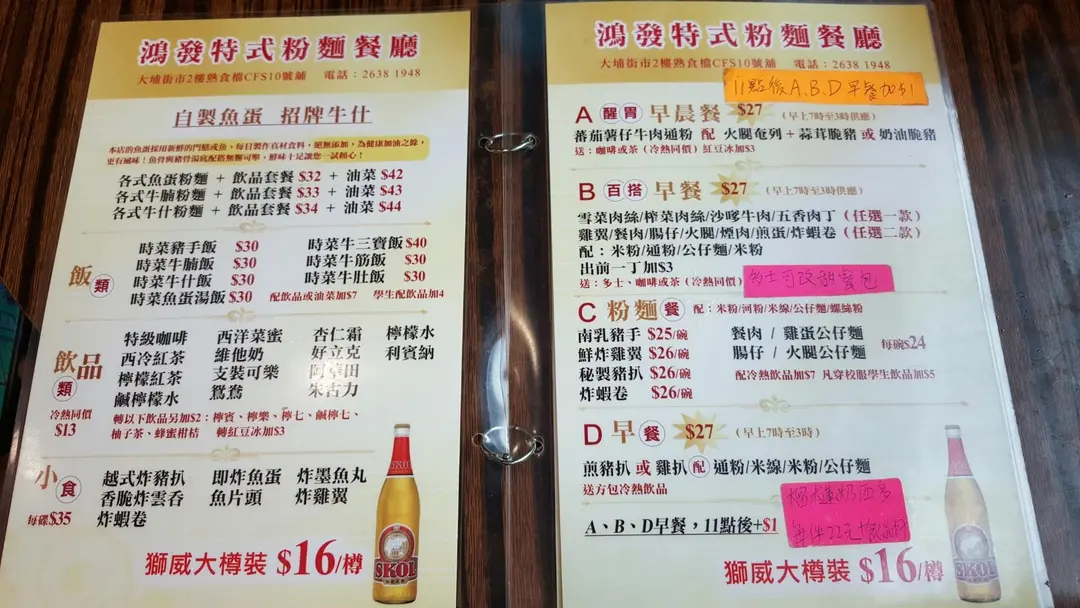 鴻發特式粉麵餐廳
大埔街市2樓熟食檔CFS10號舖 電話：2638 1948
自製魚蛋 招牌牛什
本店的魚蛋採用新鮮的門鱔或魚，每日製作真材食料，絕無添加，為健康加油之餘，
更有風味！魚骨與豬骨湯底配搭無懈可擊，鮮味十足讓您一試傾心！
各式魚蛋粉麵 + 飲品套餐 $32 + 油菜 $42
各式牛腩粉麵 + 飲品套餐 $33 + 油菜 $43
各式牛什粉麵 + 飲品套餐 $34 + 油菜 $44
飯類
時菜豬手飯 $30 時菜牛三寶飯 $40
時菜牛腩飯 $30 時菜牛筋飯 $30
時菜牛什飯 $30 時菜牛肚飯 $30
時菜魚蛋湯飯 $30 配飲品或油菜加$7 學生配飲品加4
飲品類
冷熱同價
$13
特級咖啡 西洋菜蜜 杏仁霜 檸檬水
西冷紅茶 維他奶 好立克 利賓納
檸檬紅茶 支裝可樂 阿華田
鹹檸檬水 鴛鴦 朱古力
轉以下飲品另加$2：檸賓、檸樂、檸七、鹹檸七、
柚子茶、蜂蜜柑桔 轉紅豆冰加$3
小食
每碟$35
越式炸豬扒 即炸魚蛋 炸墨魚丸
香脆炸雲吞 魚片頭 炸雞翼
炸蝦卷
獅威大樽裝 $16/樽
SKOL
鴻發特式粉麵餐廳
大埔街市2樓熟食檔CFS10號舖 電話：2638 1948
11點後A.B.D早餐加$1
A 醒胃 早晨餐 $27 (早上7時至3時供應)
蕃茄薯仔牛肉通粉 配 火腿奄列 + 蒜茸脆豬 或 奶油脆豬
送：咖啡或茶 (冷熱同價) 紅豆冰加$3
B 百搭 早餐 $27 (早上7時至3時供應)
雪菜肉絲/榨菜肉絲/沙嗲牛肉/五香肉丁 (任選一款)
雞翼/餐肉/腸仔/火腿/煙肉/煎蛋/炸蝦卷 (任選二款)
配：米粉/通粉/公仔麵/米粉
出前一丁加$3
送：多士、咖啡或茶 (冷熱同價)
多士可改甜餐包
C 粉麵餐 配：米粉/河粉/米線/公仔麵/螺絲粉
南乳豬手 $25/碗 餐肉 / 雞蛋公仔麵
鮮炸雞翼 $26/碗 腸仔 / 火腿公仔麵 每碗$24
秘製豬扒 $26/碗 配冷熱飲品加$7 凡穿校服學生飲品加$5
炸蝦卷 $26/碗
D 早餐 $27 (早上7時至3時)
煎豬扒 或 雞扒 配 通粉/米線/米粉/公仔麵
送方包冷熱飲品
奶西多
每件22元
A、B、D早餐，11點後+$1
獅威大樽裝 $16/樽
SKOL